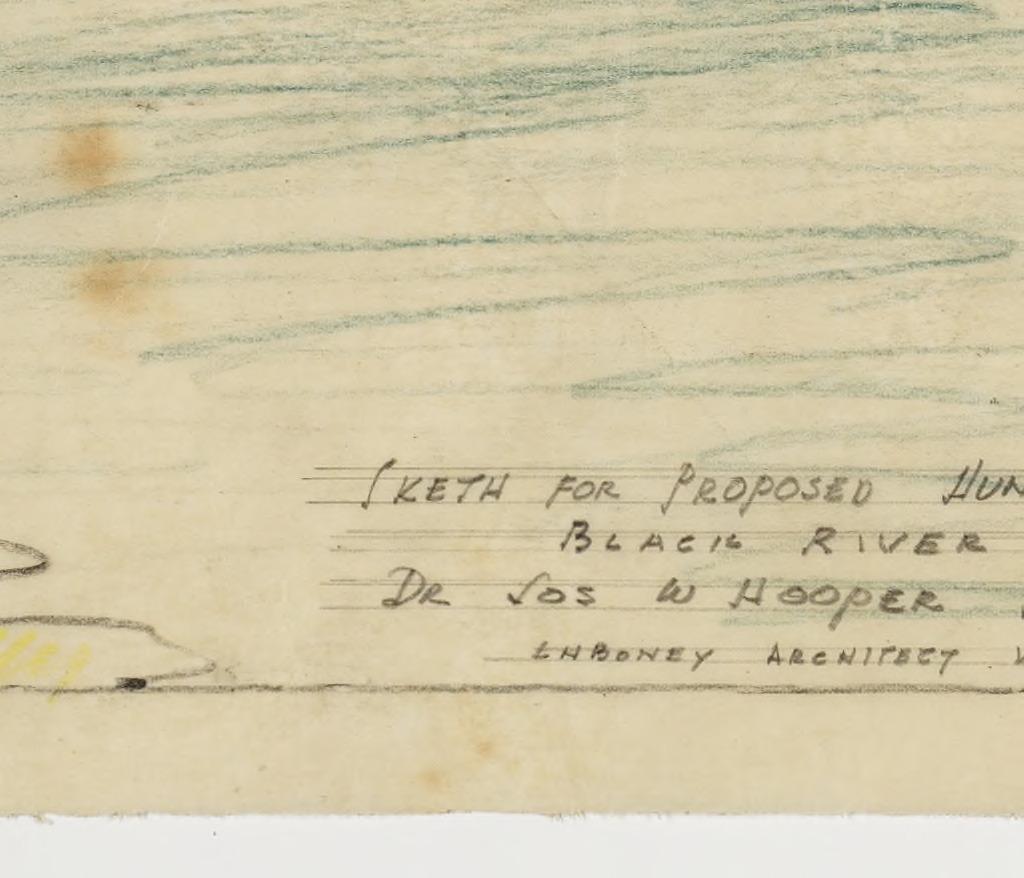 SKETH FOR PROPOSED HUN
BLACK RIVER
DR JOS W HOOPER
LHBONEY ARCHITECT W